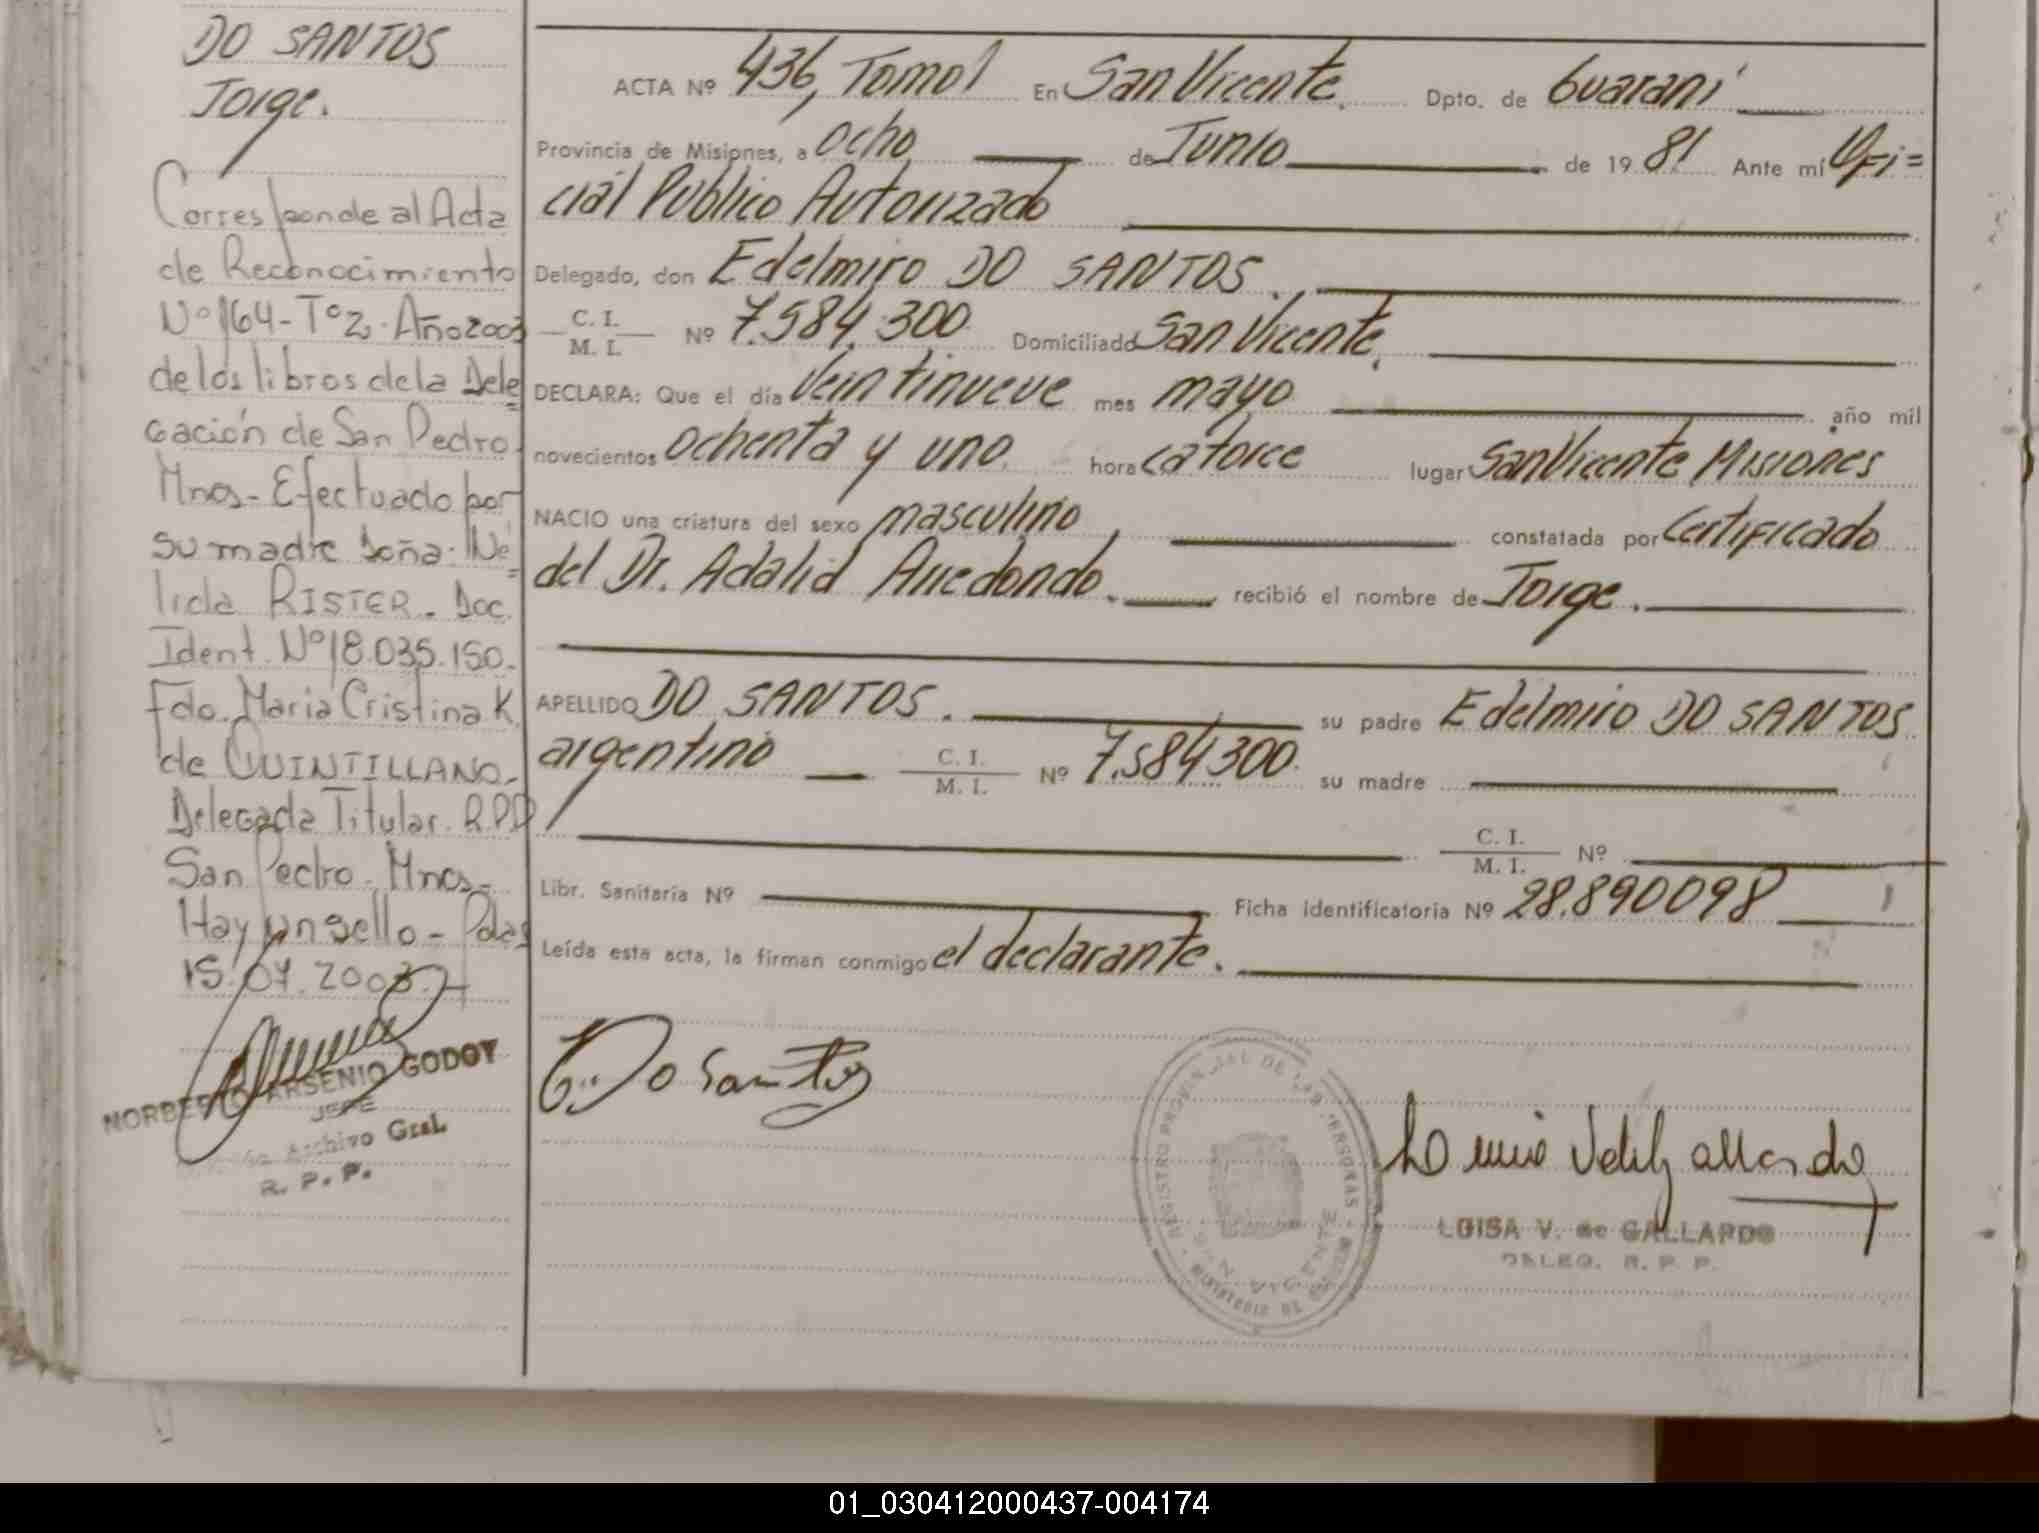 DO SANTOS
Jorge.
Corresponde al Acta
de Reconocimiento
Nº 164 - Tº 2 - Año 2003
de los libros de la Dele
gación de San Pedro
Mnes - Efectuado por
su madre Doña: Né
lida RISTER - Doc.
Ident. Nº 18.035.150.
Fdo. María Cristina K.
de QUINTILLANO -
Delegada Titular. R.P.P
San Pedro - Mnes -
Hay un sello - Pdas
15.07.2003.-
NORBERTO ARSENIO GODOY
JEFE
Archivo Gral.
R. P. P.
ACTA Nº 436, Tomo I En San Vicente. Dpto. de Guaraní
Provincia de Misiones, a ocho de Junio de 1981 Ante mí Ofi=
cial Público Autorizado
Delegado, don Edelmiro DO SANTOS.
C. I.
M. I. Nº 7.584.300 Domiciliado San Vicente.
DECLARA: Que el día veintinueve mes mayo año mil
novecientos ochenta y uno hora catorce lugar San Vicente Misiones
NACIO una criatura del sexo masculino, constatada por Certificado
del Dr. Adalid Arredondo. recibió el nombre de Jorge.
APELLIDO DO SANTOS. su padre Edelmiro DO SANTOS
argentino C. I.
M. I. Nº 7.584300. su madre
C. I.
M. I. Nº
Libr. Sanitaria Nº Ficha identificatoria Nº 28.890098
Leída esta acta, la firman conmigo el declarante.
E. Do Santos
REGISTRO PROVINCIAL DE LAS PERSONAS
SAN VICENTE
LUISA V. de GALLARDO
DELEG. R. P. P.
01_030412000437-004174